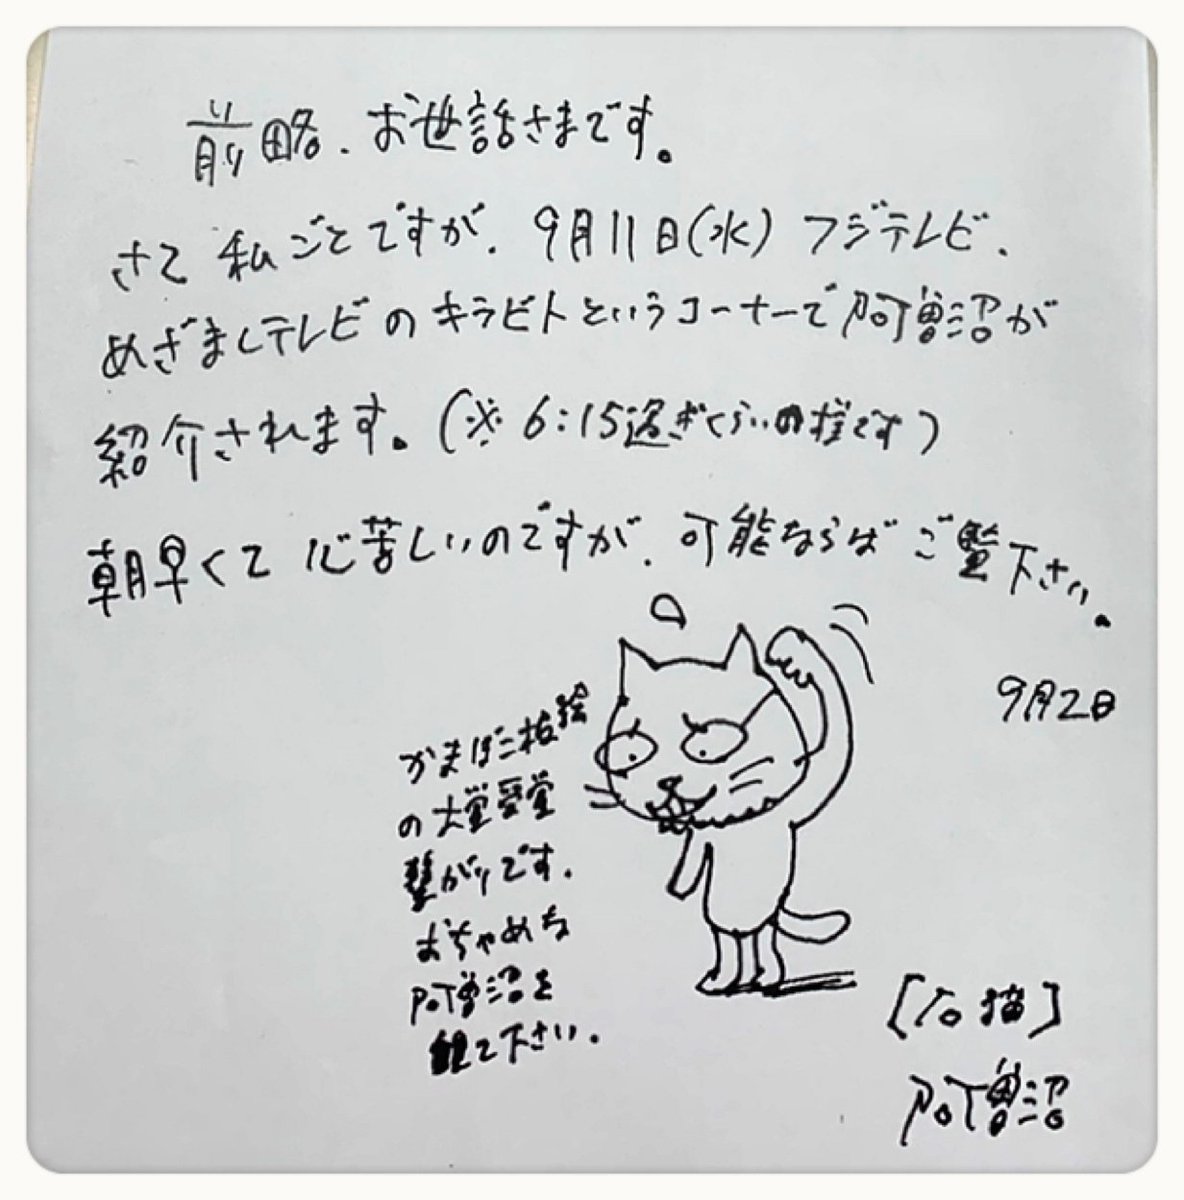 前略、お世話さまです。
さて 私ごとですが、9月11日(水) フジテレビ、
めざましテレビのキラビトというコーナーで阿曽沼が
紹介されます。(※ 6:15過ぎくらいの様です)
朝早くて 心苦しいのですが、可能ならば ご覧下さい。
9月2日
かまぼこ板絵
の大賞受賞
繋がりです。
おちゃめな
阿曽沼を
観て下さい。
[石猫]
阿曽沼